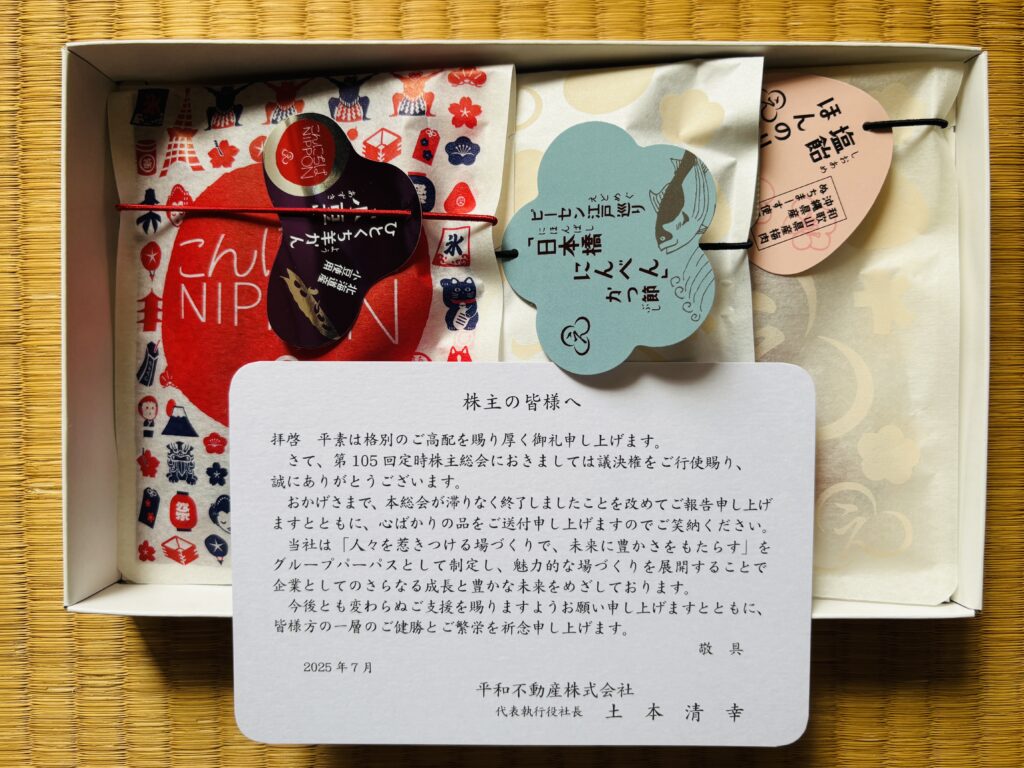 こんに
NIPP N
こんにちは
NIPPON
ひとくち羊かん
北海道産
小豆使用
ピーセン江戸巡り
えどめぐ
にほんばし
「日本橋
にんべん」
かつ節
ぶし
塩飴
しおあめ
ほんのり
和歌山県産梅肉
沖縄県産
ぬちまーす使用
氷
祭
株主の皆様へ
拝啓 平素は格別のご高配を賜り厚く御礼申し上げます。
さて、第105回定時株主総会におきましては議決権をご行使賜り、
誠にありがとうございます。
おかげさまで、本総会が滞りなく終了しましたことを改めてご報告申し上げ
ますとともに、心ばかりの品をご送付申し上げますのでご笑納ください。
当社は「人々を惹きつける場づくりで、未来に豊かさをもたらす」を
グループパーパスとして制定し、魅力的な場づくりを展開することで
企業としてのさらなる成長と豊かな未来をめざしております。
今後とも変わらぬご支援を賜りますようお願い申し上げますとともに、
皆様方の一層のご健勝とご繁栄を祈念申し上げます。
敬 具
2025年7月
平和不動産株式会社
代表執行役社長 土 本 清 幸